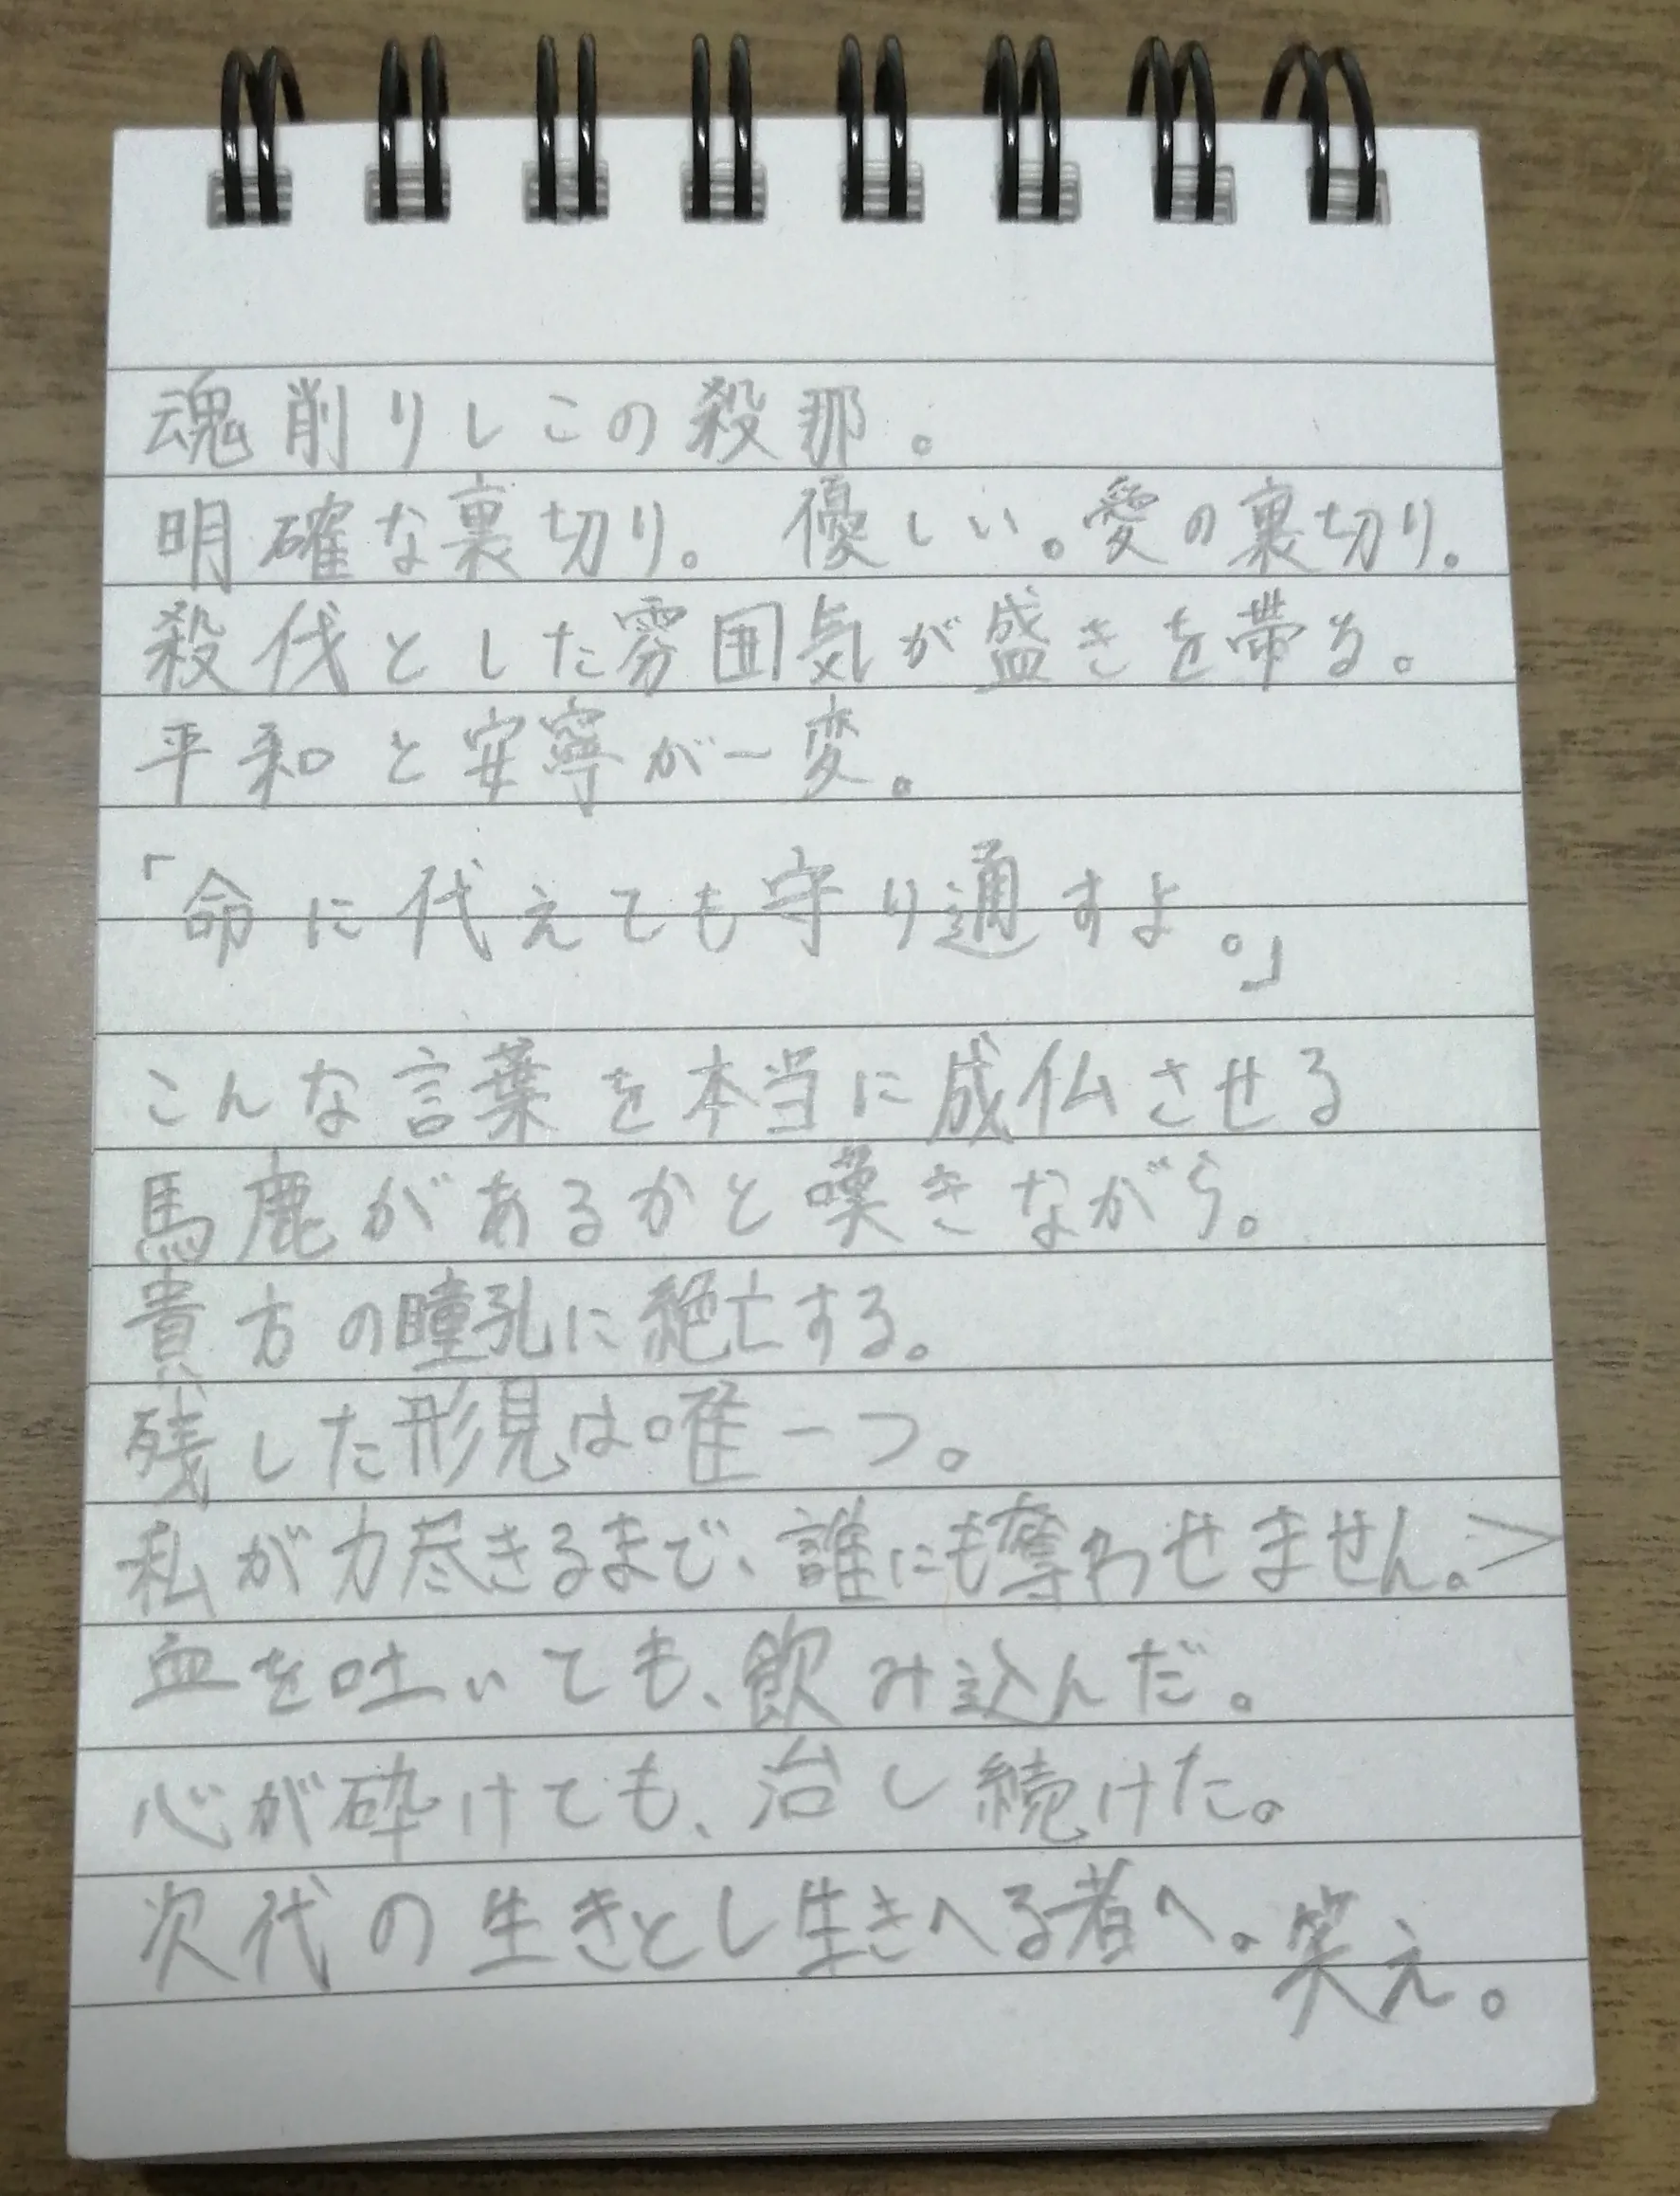 魂削りしこの殺那。
明確な裏切り。 優しい。愛の裏切り。
殺伐とした雰囲気が盛きを帯る。
平和と安寧が一変。
「命に代えても守り通すよ。」
こんな言葉を本当に成仏させる
馬鹿があるかと嘆きながら。
貴方の瞳孔に絶亡する。
残した形見は唯一つ。
私が力尽きるまで、誰にも奪わせません。＞
血を吐いても、飲み込んだ。
心が砕けても、治し続けた。
次代の生きとし生きへる者へ。笑え。